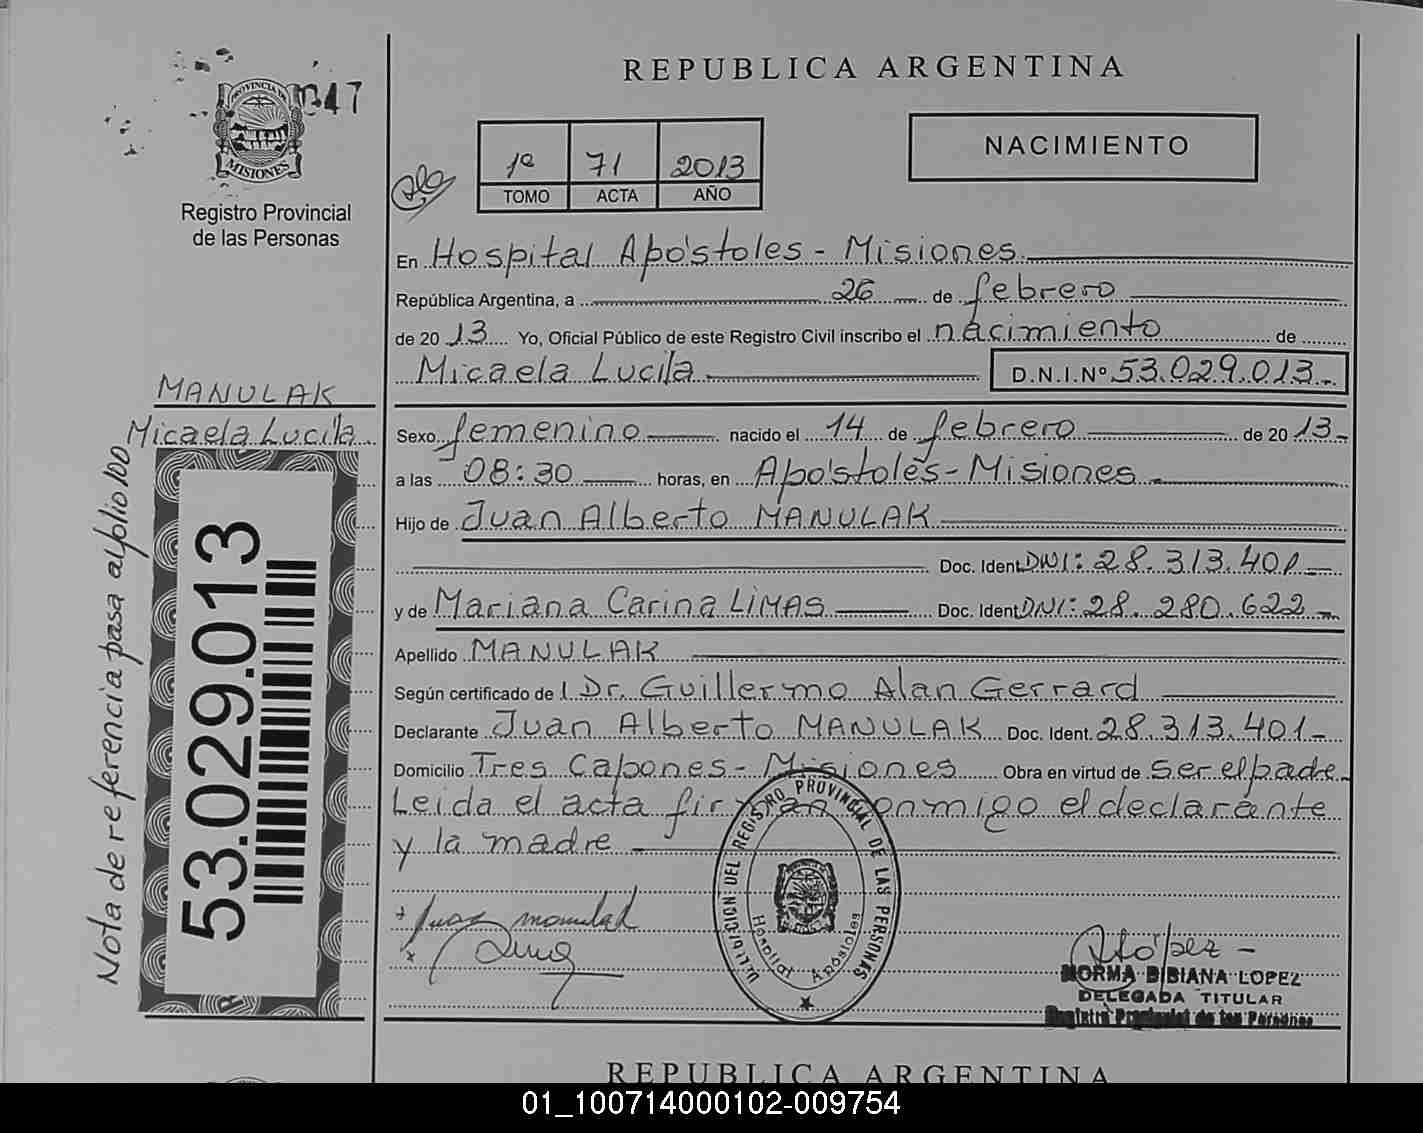 REPUBLICA ARGENTINA
PROVINCIA DE
MISIONES
047
Registro Provincial
de las Personas
1º 71 2013
TOMO ACTA AÑO
NACIMIENTO
En Hospital Apóstoles - Misiones
República Argentina, a 26 de febrero
de 2013 Yo, Oficial Público de este Registro Civil inscribo el nacimiento de
Micaela Lucila D.N.I.Nº 53.029.013.-
MANULAK
Micaela Lucila
Sexo femenino nacido el 14 de febrero de 2013-
a las 08:30 horas, en Apóstoles - Misiones
Hijo de Juan Alberto MANULAK
Doc. Ident DNI: 28.313.401-
y de Mariana Carina LIMAS Doc. Ident DNI: 28.280.622-
Apellido MANULAK
Según certificado de l Dr. Guillermo Alan Gerrard
Declarante Juan Alberto MANULAK Doc. Ident. 28.313.401-
Domicilio Tres Capones - Misiones Obra en virtud de ser el padre-
Leida el acta firman conmigo el declarante
y la madre
Nota de referencia pasa al folio 100
53.029.013
DEL REGISTRO PROVINCIAL DE LAS PERSONAS
Hospital Apóstoles
Juan Manulak
NORMA BIBIANA LOPEZ
DELEGADA TITULAR
Registro Provincial de las Personas
REPUBLICA ARGENTINA
01_100714000102-009754